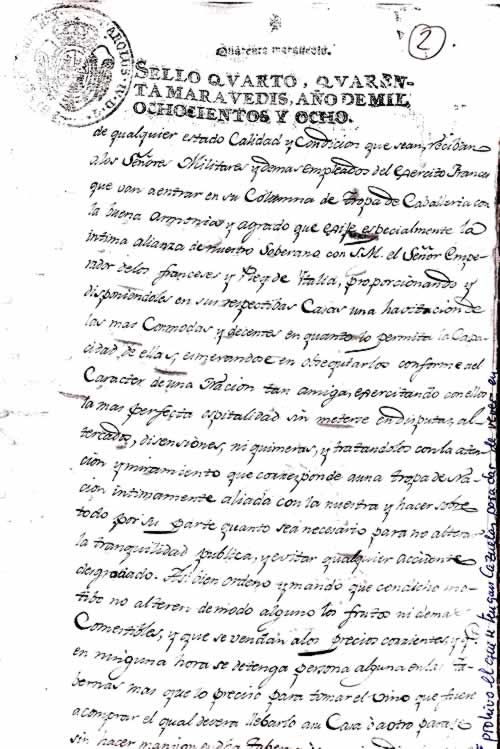 2
Quarenta maravedis.
SELLO QVARTO, QVAREN-
TA MARAVEDIS, AÑO DE MIL
OCHOCIENTOS Y OCHO.
de qualquier estado Calidad y Condicion que sean, reciban
a los Señores Militares y demas empleados del Exercito Frances
que van a entrar en su Columna de tropa de Caballeria con
la buena Armonia y agrado que exije especialmente la
intima alianza de nuestro Soberano con S.M. el Señor Empe-
rador de los franceses y Rey de Italia, proporcionando y
disponiendoles en sus respectibas Casas una havitacion de
las mas Commodas y decentes en quanto lo permita la Capa-
cidad de ellas, esmerandose en obsequiarlos conforme al
Caracter de una Nacion tan amiga, exercitando con ellos
la mas perfecta ospitalidad sin meterse en disputas, al-
tercados, disensiones, ni quimeras, y tratandolos con la aten-
cion y miramiento que corresponde a una tropa de Na-
cion intimamente aliada con la nuestra y hacer sobre
todo por su parte quanto sea necesario para no alterar
la tranquilidad publica, y evitar qualquier accidente
desgraciado. Asi bien ordeno y mando que con dicho mo-
tibo no alteren de modo alguno los frutos ni demas
Comestibles, y que se vendan a los precios corrientes, y q.
en ninguna hora se detenga persona alguna en las ta-
bernas mas que lo preciso para tomar el vino que fuere
a comprar el qual devera llebarlo a su Casa o a otro parage
sin hacer mansion en dicha taberna